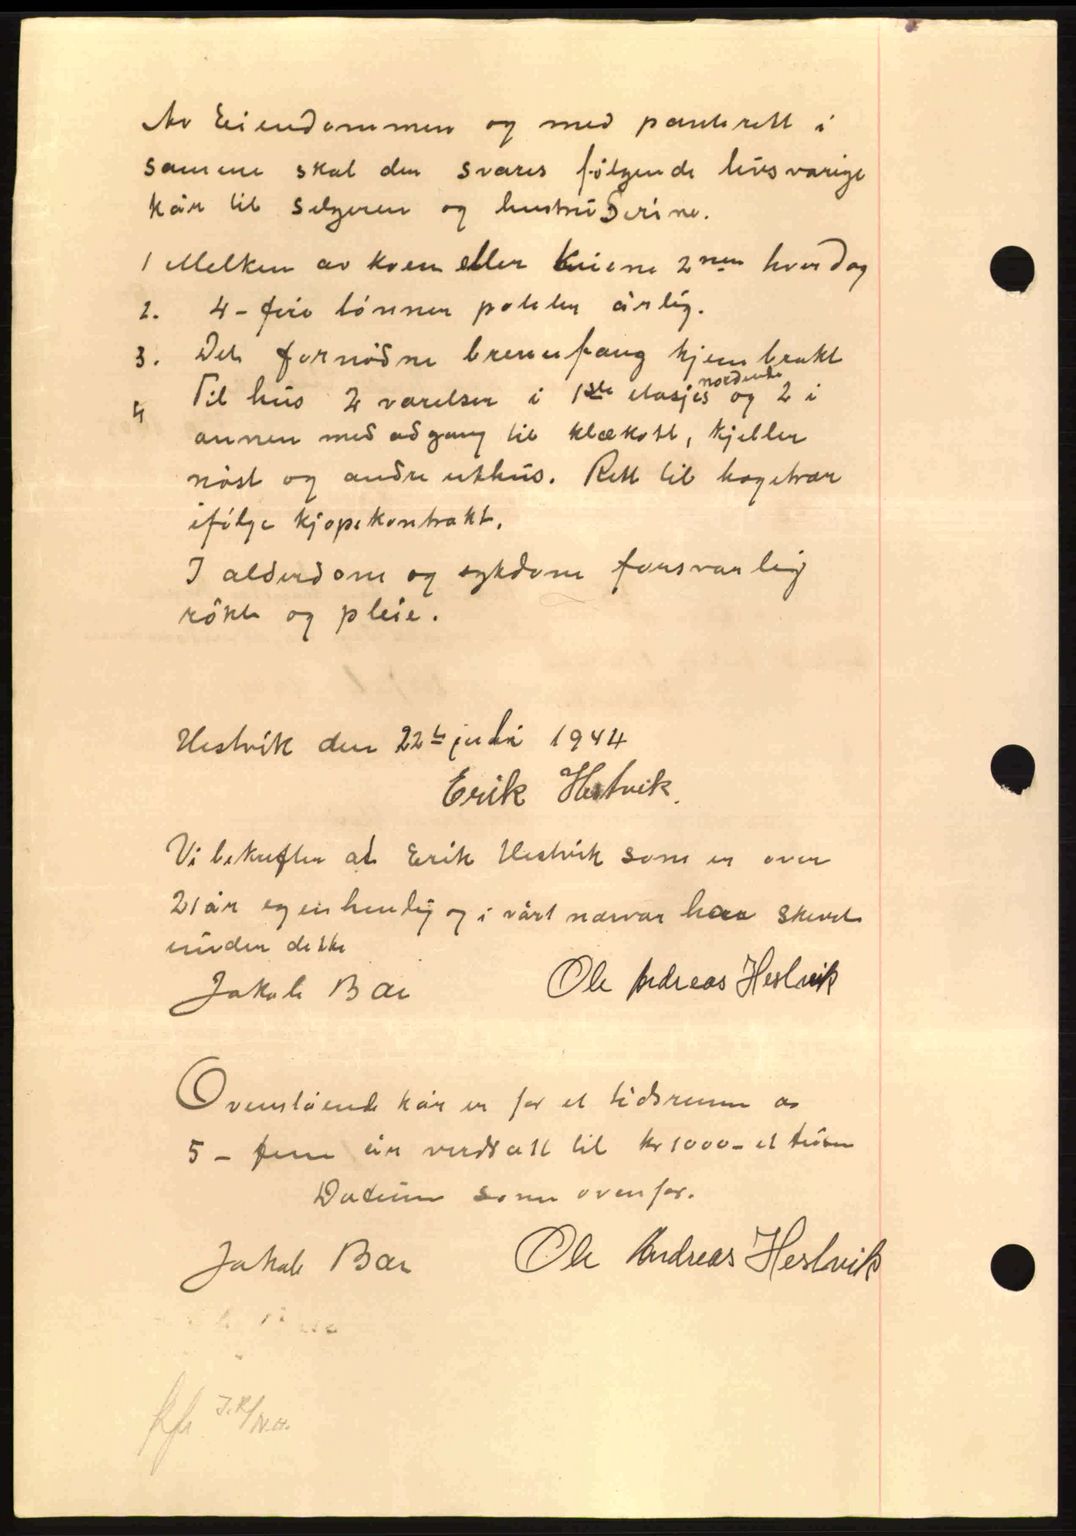 Av Eiendommen og med panterett i
samme skal der svares følgende livsvarige
kår til selgeren og hustru Serine.
1 Melken av kuen eller kuiene 2nen hverdag
2. 4 - fire tönner poteter årlig.
3. Det fornödne brenefang hjem brakt
4 Til hus 2 værelser i 1ste etasjes nordende og 2 i
annen med adgang til klækott, kjeller
nöst og andre uthus. Rett til hagetrær
ifölge kjöpekontrakt.
I alderdom og sykdom forsvarlig
rökt og pleie.
Hestvik den 22de juli 1944
Erik Hestvik.
Vi bekrefter at Erik Hestvik som er over
21 år egenhendig og i vårt nærvær har skrevet
under dette
Jakob Bae Ole Andreas Hestvik
Ovenstående kår er for et tidsrum av
5 - fem år verdsatt til kr 1000 - et tusen
Datum som ovenfor.
Jakob Bae Ole Andreas Hestvik